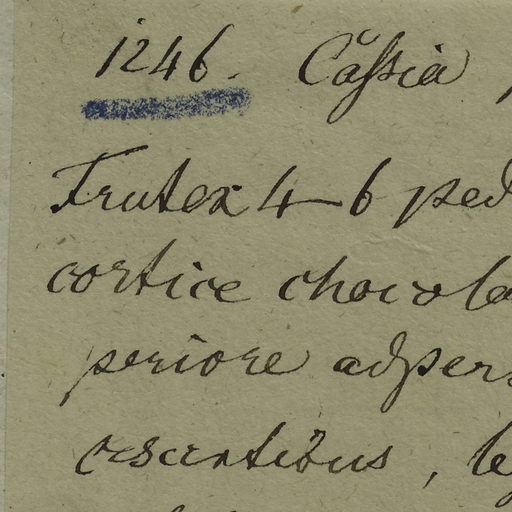 1246. Cassia
Frutex 4-6 ped
cortice chocola
periore adpers
crescentibus, le